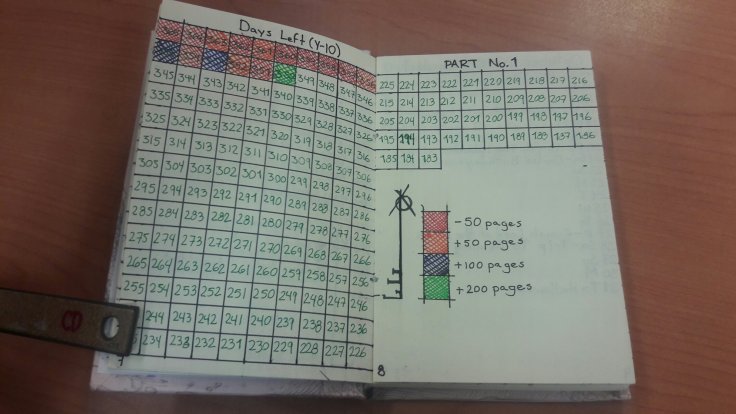 Days Left (Y-10)
349 348 347 346
345 344 343 342 341 340 339 338 337 336
335 334 333 332 331 330 329 328 327 326
325 324 323 322 321 320 319 318 317 316
315 314 313 312 311 310 309 308 307 306
305 304 303 302 301 300 299 298 297 296
295 294 293 292 291 290 289 288 287 286
285 284 283 282 281 280 279 278 277 276
275 274 273 272 271 270 269 268 267 266
265 264 263 262 261 260 259 258 257 256
255 254 253 252 251 250 249 248 247 246
244 243 242 241 240 239 238 237 236
234 233 232 231 230 229 228 227 226
7
PART No.1
225 224 223 222 221 220 219 218 217 216
215 214 213 212 211 210 209 208 207 206
205 204 203 202 201 200 199 198 197 196
195 194 193 192 191 190 189 188 187 186
185 184 183
-50 pages
+50 pages
+100 pages
+200 pages
8